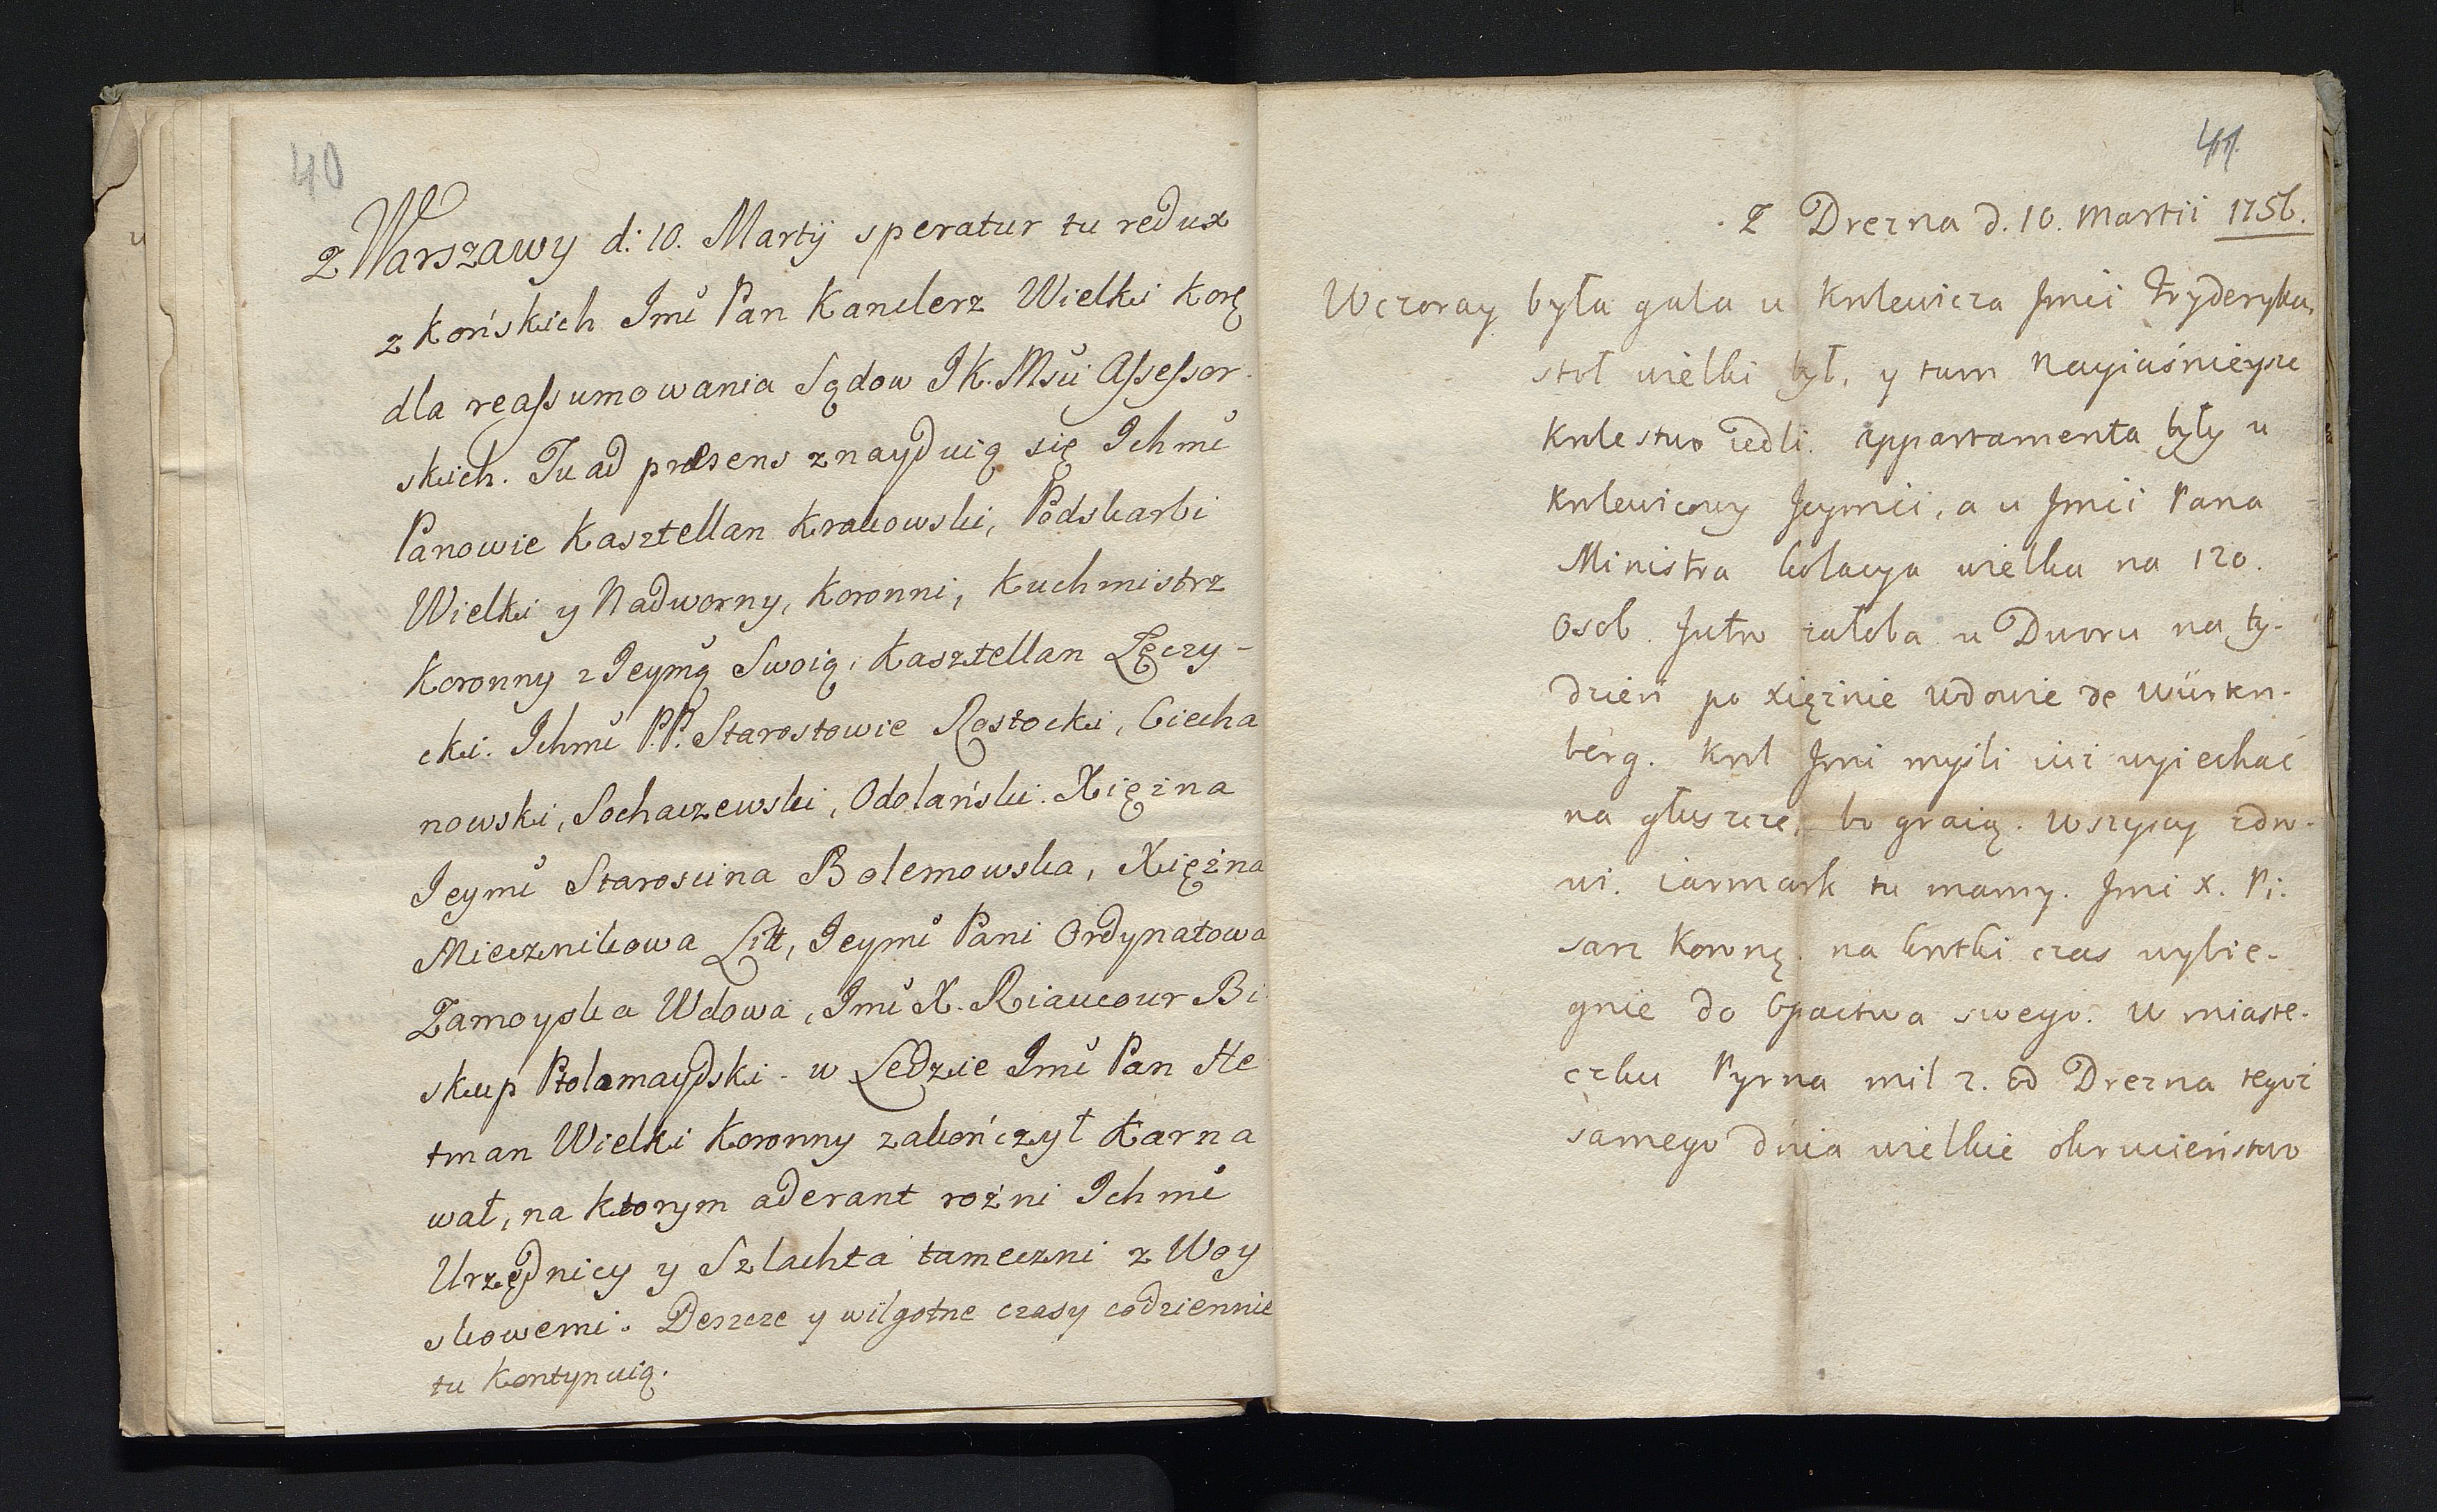 40
Z Warszawy d: 10. Martij speratur tu redux
z Końskich Jmć Pan Kanclerz Wielki Korę
dla reassumowania Sądow JK. Msći Assessor-
skich. Tu ad præsens znayduią się Ichmć
Panowie Kasztellan Krakowski, Podskarbi
Wielki y Nadworny, Koronni, Kuchmistrz
Koronny z Jeymą Swoią, Kasztellan Lęczy-
cki. Ichmć P.P. Starostowie Rostocki, Ciecha
nowski, Sochaczewski, Odolański. Xiężna
Jeymć Starościna Bolemowska, Xiężna
Miecznikowa Litt, Jeymć Pani Ordynatowa
Zamoyska Wdowa, Jmć X. Riaucour Bi
skup Ptolamaydski. w Ledzie Jmć Pan He
tman Wielki Koronny zakończył Karna
wał, na ktorym aderant rożni Ichmć
Urzędnicy y Szlachta tameczni z Woy
skowemi. Deszcze y wilgotne czasy codziennie
tu Kontynuią.
41.
Z Drezna d. 10. Martii 1756.
Wczoray była gala u Krolewicza Jmći Fryderyka,
stoł wielki był, y tam Nayiaśnieysze
Krolestwo iedli. Appartamenta były u
Krolewicowy Jeymći, a u Jmći Pana
Ministra kolacya wielka na 120.
Osob. Jutro załoba u Dworu na ty-
dzień po Xiężnie Wdowie de Würtem-
berg. Krol Jmć myśli iuż wyiechać
na głuszcze, bo graią. Wszyscy zdro-
wi. iarmark tu mamy. Jmć X. Pi:
sarz Koronę. na krotki czas wybie-
gnie do Opactwa swego. W miaste-
czku Pyrna mil 2. od Drezna tegoż
samego dnia wielkie okrucieństwo